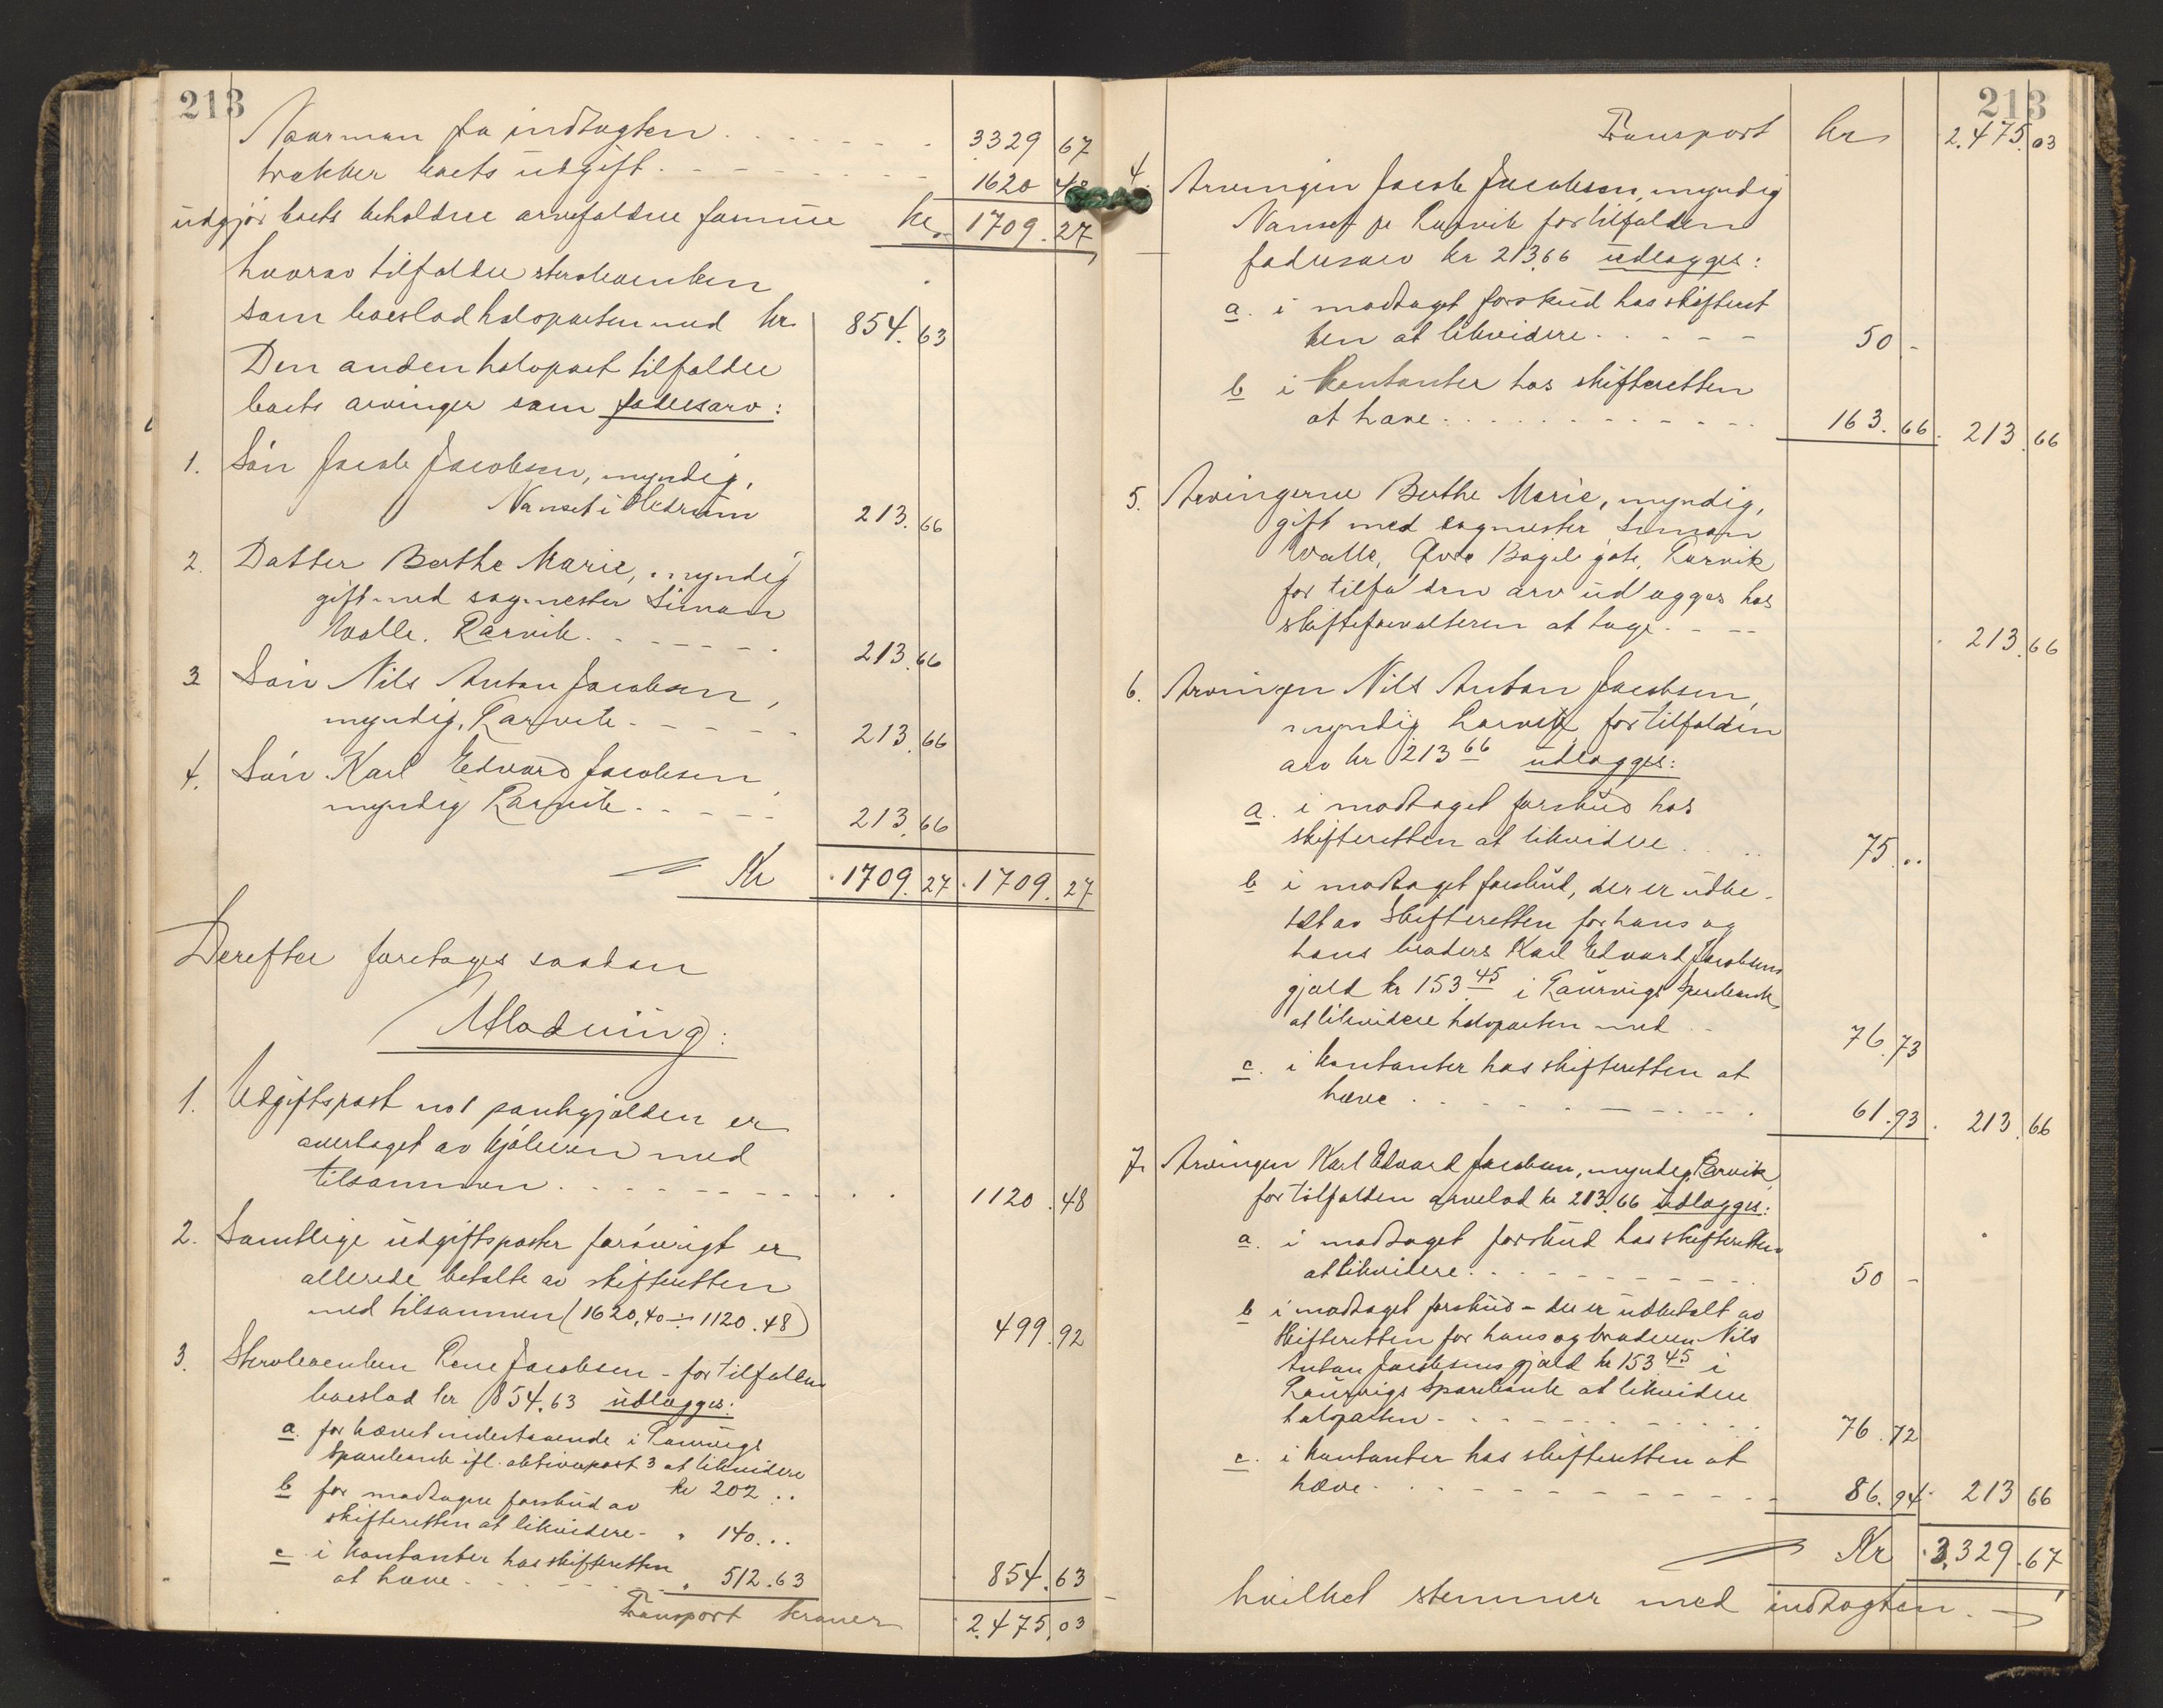 213
Naarman fra indtægten . . . . . . . 3329 67
trækker boets udgift . . . . . . . 1620 40
udgjør boets beholdne arvefaldne formue kr. 1709.27
hvorav tilfalder stervboenken
som boeslod halvparten med kr. 854.63
Den anden halvpart tilfalder
boets arvinger som fædrearv:
1. Søn Jacob Jacobsen, myndig,
Nanset i Hedrum 213.66
2. Datter Berthe Marie, myndig
gift med sagmester Simon
Walle. Larvik. - - - - . 213.66
3 Søn Nils Anton Jacobsen,
myndig, Larvik - - - - . 213.66
4. Søn Karl Edvard Jacobsen,
myndig Larvik - - - - - 213.66
Kr 1709.27 1709.27
Derefter foretages saadan
Utlodning:
1. Udgiftspost no 1 pantegjælden er
overtaget av kjøberen med
tilsammen . . . . . . . 1120.48
2. Samtlige udgiftsposter forøvrigt er
allerede betalte av skifteretten
med tilsammen (1620,40 ÷ 1120.48) 499.92
3. Stervboenken Lene Jacobsen - for tilfalden
boeslod kr 854.63 udlægges:
a. for hævet indestaaende i Laurvigs
Sparebank ifl. aktivapost 3 at likvidere
kr 202 ..
b for modtagne forskud av
skifteretten at likvidere - " 140 ...
c i kontanter hos skifteretten
at hæve - - - - - " 512.63 854.63
Transport kroner 2.475.03
213
Transport kr 2.475.03
4. Arvingen Jacob Jacobsen, myndig
Nanset pr Larvik for tilfalden
fædrearv kr 213.66 udlægges:
a. i modtaget forskud hos skifteret
ten at likvidere . . - - - 50 -
b i kontanter hos skifteretten
at hæve . . . . . . . . . . . 163.66. 213 66
5. Arvingerne Berthe Marie, myndig,
gift med sagmester Simon
Walle, Øvre Bøgel gate, Larvik
for tilfalden arv udlægges hos
skifteforvalteren at tage - - - - 213.66
6. Arvingen Nils Anton Jacobsen,
myndig Larvik, for tilfalden
arv kr 213 66 udlægges:
a. i modtaget forskud hos
skifteretten at likvidere . . . 75 ..
b i modtaget forskud, der er udbe-
talt av Skifteretten for hans og
hans broders Karl Edvard Jacobsens
gjæld kr 153 45 i Laurvigs Sparebank
at likvidere halvparten med . - 76.73
c. i kontanter hos skifteretten at
hæve . . - - - - - - - . 61.93. 213.66
7. Arvingen Karl Edvard Jacobsen, myndig, Larvik,
for tilfalden arvelod kr 213.66 udlægges:
a. i modtaget forskud hos skifteretten
at likvidere . . - - - - - - - . 50 -
b i modtaget forskud - der er udbetalt av
Skifteretten for hans og broderen Nils
Anton Jacobsens gjæld kr 153 45 i
Laurvigs Sparebank at likvidere
halvparten - - - - - - - . . 76.72
c. i kontanter hos skifteretten at
hæve - - - - - - - - - - - 86.94. 213 66
Kr 3.329.67
hvilket stemmer med indtægten.